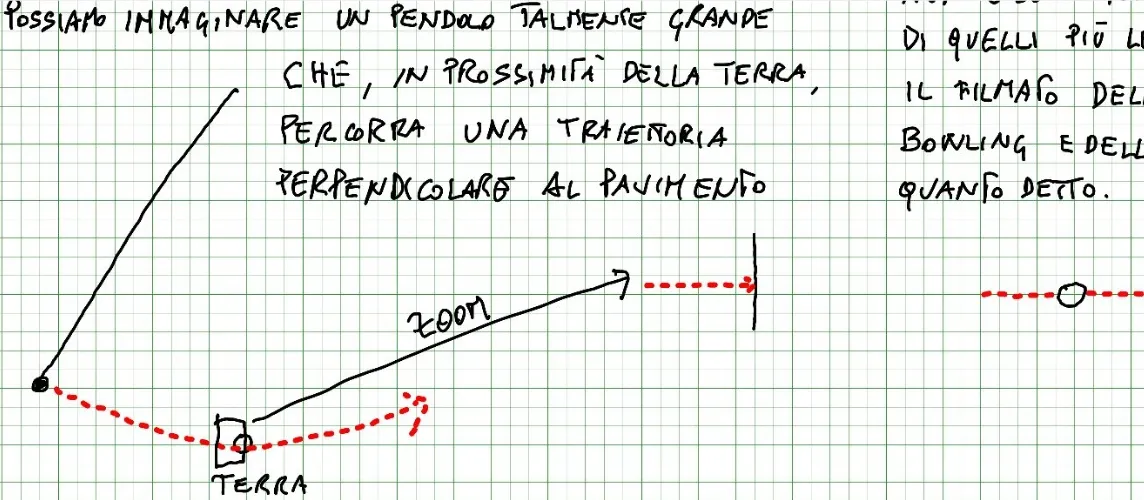 POSSIAMO IMMAGINARE UN PENDOLO TALMENTE GRANDE
CHE, IN PROSSIMITÀ DELLA TERRA,
PERCORRA UNA TRAIETTORIA
PERPENDICOLARE AL PAVIMENTO
ZOOM
TERRA
DI QUELLI PIÙ
IL FILMATO
BOWLING E
QUANTO DETTO.